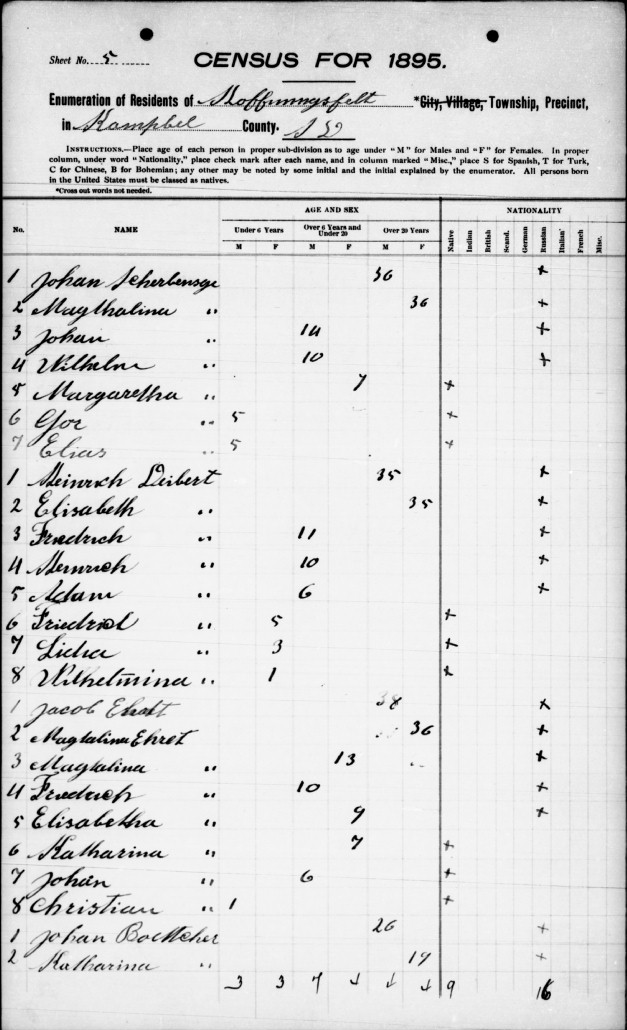 Sheet No. 5
CENSUS FOR 1895.
Enumeration of Residents of Hoffnungsfelt *City, Village, Township, Precinct,
in Kampbel County. S D
INSTRUCTIONS.—Place age of each person in proper sub-division as to age under "M" for Males and "F" for Females. In proper
column, under word "Nationality," place check mark after each name, and in column marked "Misc.," place S for Spanish, T for Turk,
C for Chinese, B for Bohemian; any other may be noted by some initial and the initial explained by the enumerator. All persons born
in the United States must be classed as natives.
*Cross out words not needed.
AGE AND SEX NATIONALITY
No. NAME Under 6 Years Over 6 Years and Under 20 Over 20 Years Native Indian British Scand. German Russian Italian French Misc.
M F M F M F
1 Johan Scherbenske 36 +
2 Magthalina " 36 +
3 Johan " 14 +
4 Wilhelm " 10 +
5 Margaretha " 7 +
6 " 5 +
7 Elias " 5 +
1 Heinrich Deibert 35 +
2 Elisabeth " 35 +
3 Friedrich " 11 +
4 Heinrich " 10 +
5 Adam " 6 +
6 " 5 +
7 Lidia " 3 +
8 Wilhelmina " 1 +
1 Jacob 38 +
2 Magtalina Ehret 36 +
3 Magtalina " 13 +
4 Friedrich " 10 +
5 Elisabetha " 9 +
6 Katharina " 7 +
7 Johan " 6 +
8 Christian " 1 +
1 Johan Boettcher 26 +
2 Katharina " 19 +
3 3 7 4 4 4 9 16